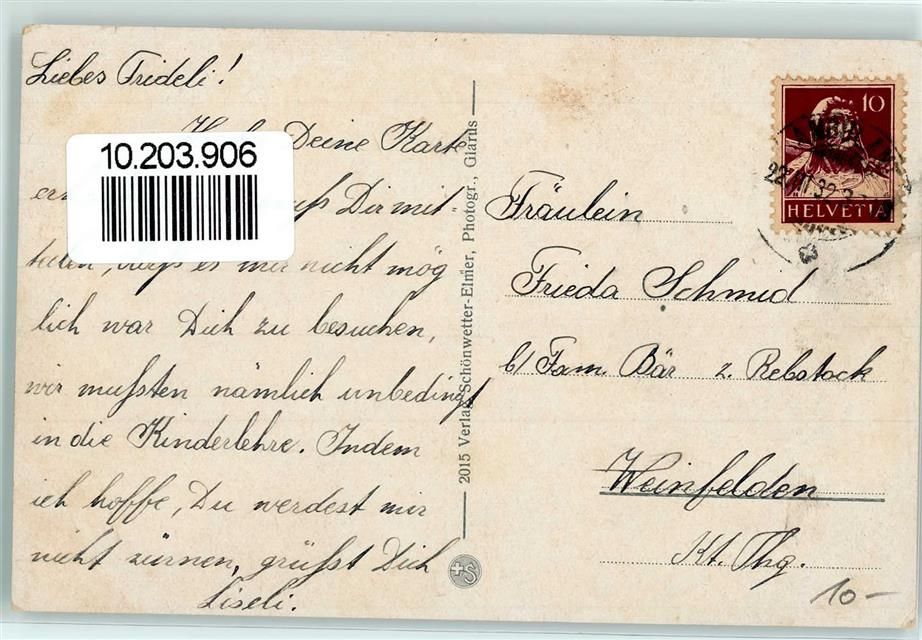 Liebes Frideli!
Deine Karte
10.203.906
Dir mit-
teilen, dass es mir nicht mög
lich war Dich zu besuchen,
wir mussten nämlich unbedingt
in die Kinderlehre. Indem
ich hoffe, Du werdest mir
nicht zürnen, grüsst Dich
Liseli.
2015 Verlag Schönwetter-Elmer, Photogr., Glarus
10
HELVETIA
Fräulein
Frieda Schmid
b/ Fam. Bär z. Rebstock
Weinfelden
Kt. Thg.
10-